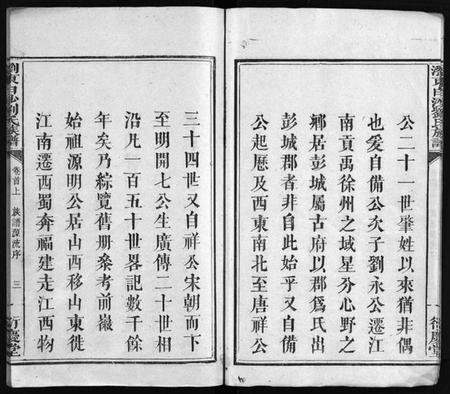 瀏東白沙劉氏族譜
公二十一世肇姓以來猶非偶
也爰自備公次子劉永公遷江
南貢禹徐州之域星分心野之
鄉居彭城屬古府以郡爲氏出
彭城郡者自此始乎又自備
公起歷及西東南北至唐祥公
衍慶堂
三十四世又自祥公宋朝而下
至明開七公生廣傳二十世相
沿凡一百五十世畧記數千餘
年矣乃綜覽舊册叅考前嶽
始祖源明公居山西移山東徙
江南遷西蜀奔福建走江西物
瀏東白沙劉氏族譜
卷首上
族譜源流序
三
衍慶堂